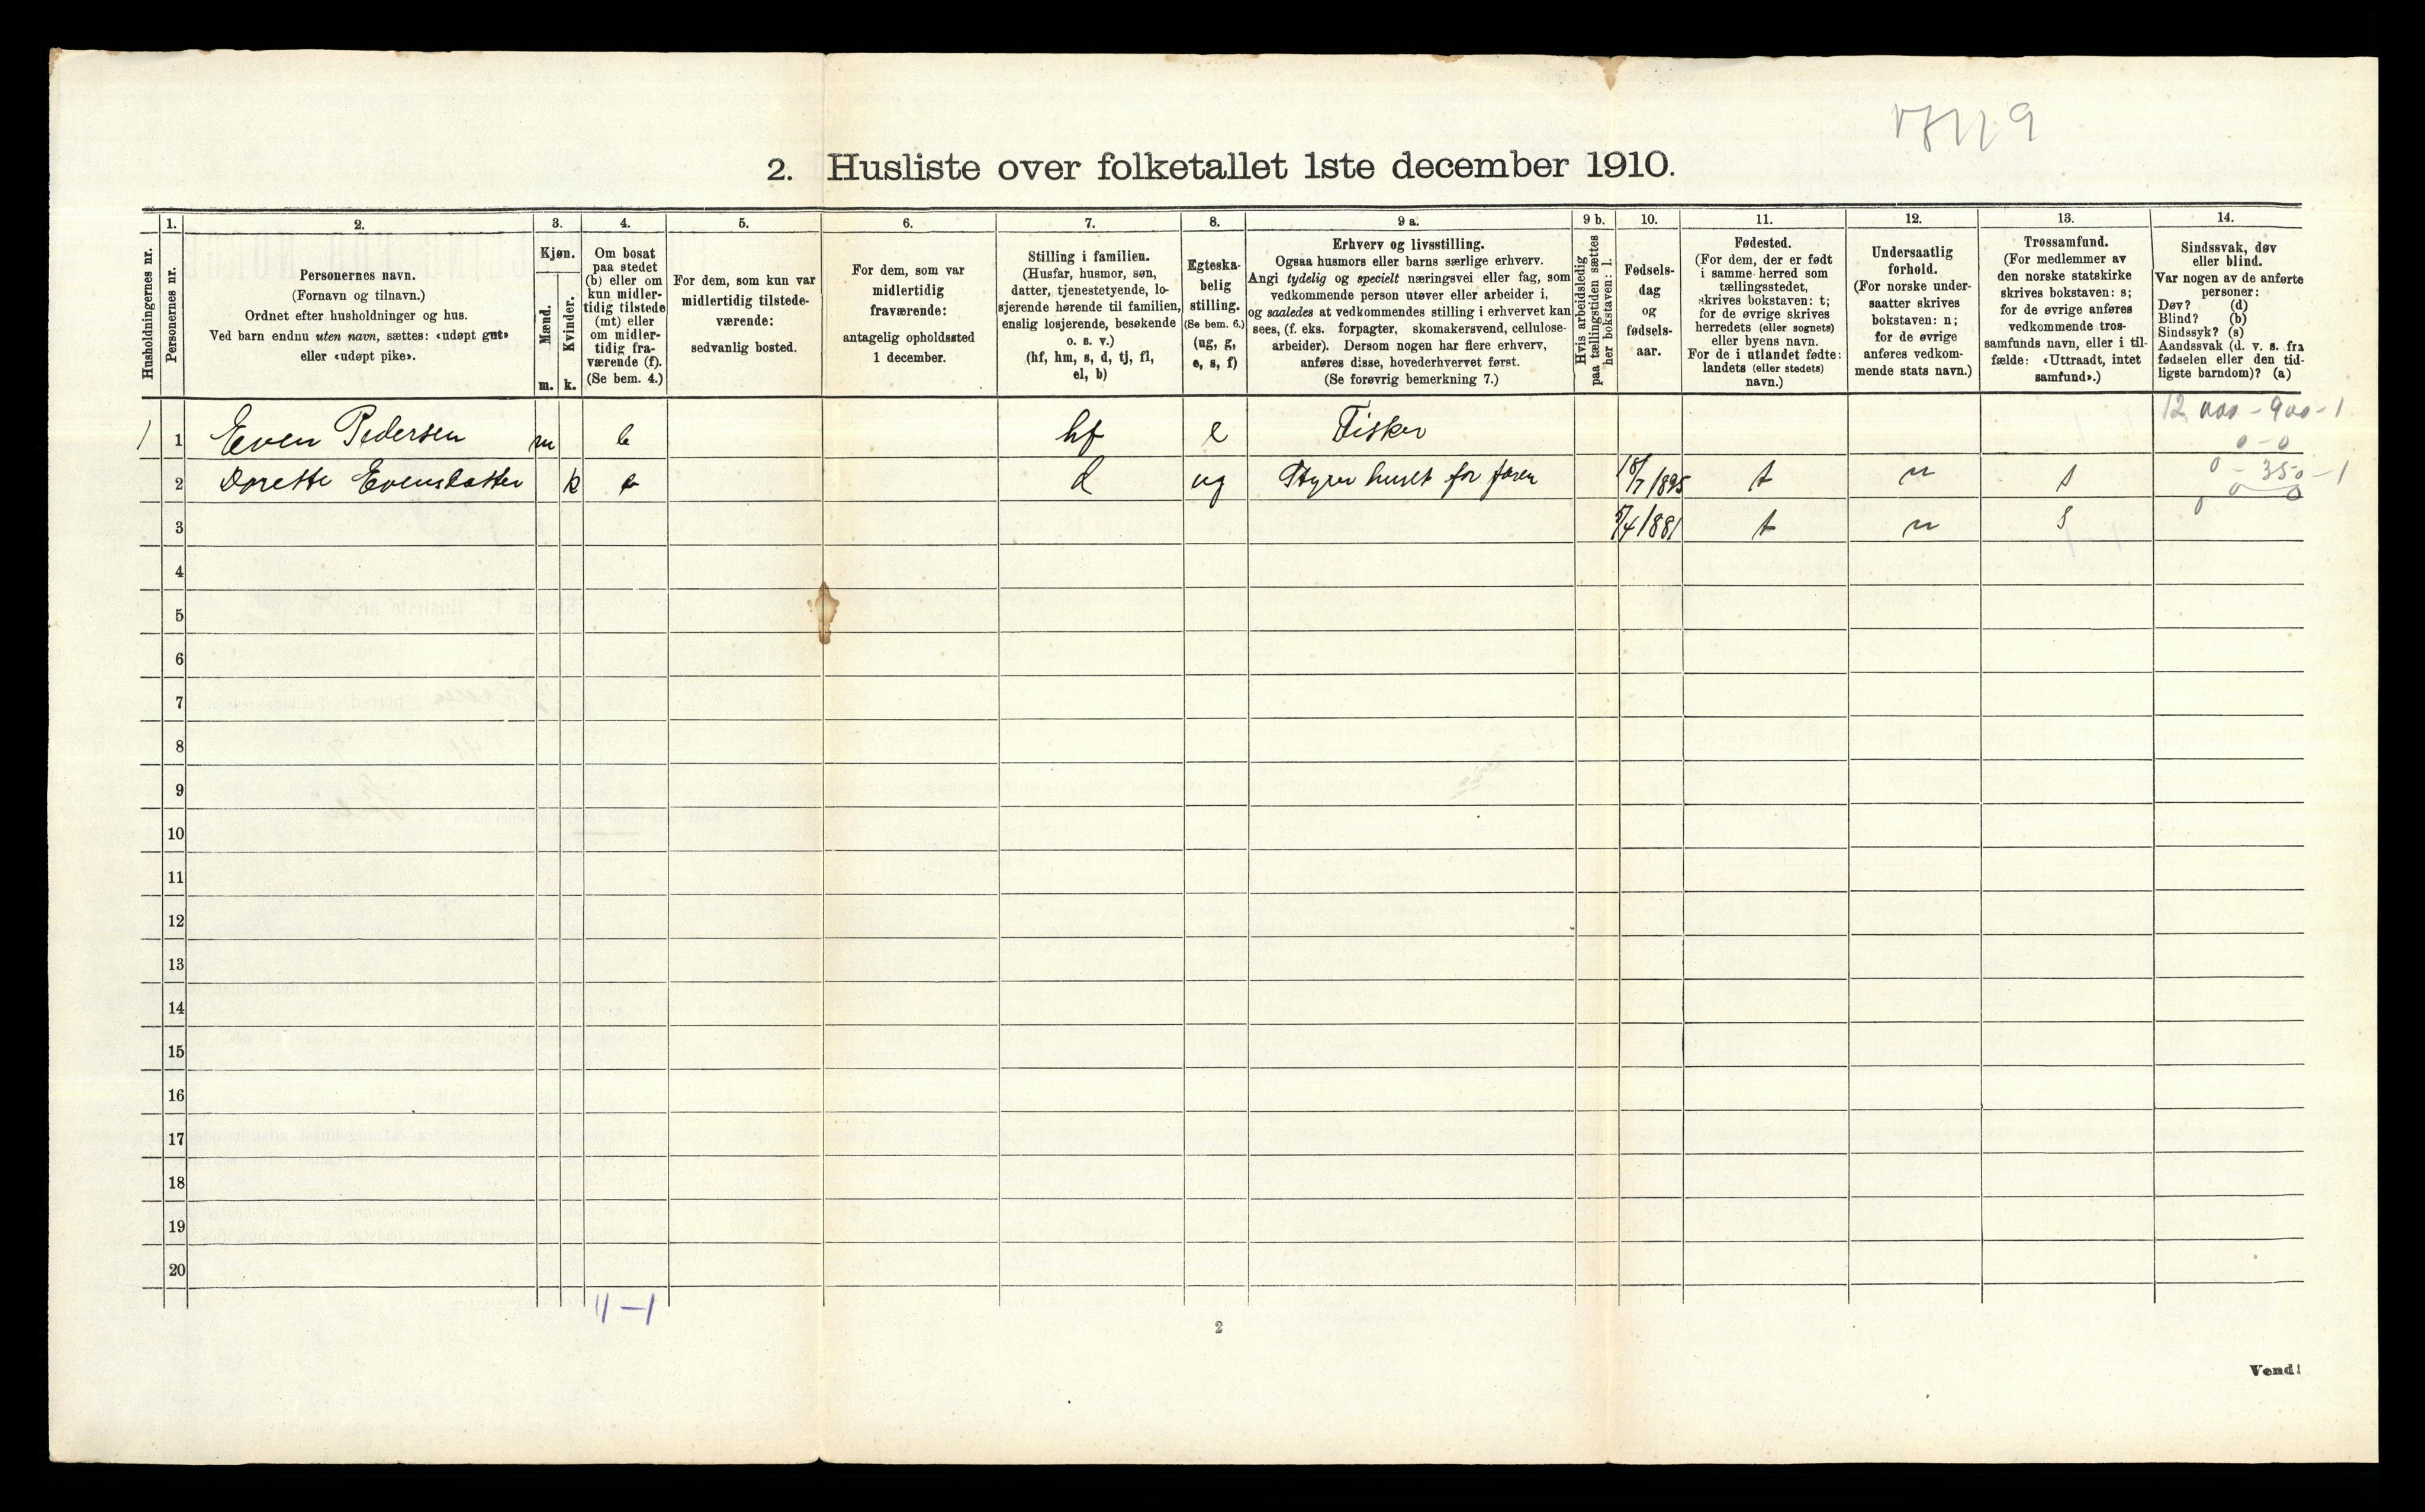 2. Husliste over folketallet 1ste december 1910.
1. 2. 3. 4. 5. 6. 7. 8. 9 a. 9 b. 10. 11. 12. 13. 14.
Husholdningernes nr.
Personernes nr.
Personernes navn.
(Fornavn og tilnavn.)
Ordnet efter husholdninger og hus.
Ved barn endnu uten navn, sættes: «udøpt gut»
eller «udøpt pike».
Kjøn.
Mænd.
m.
Kvinder.
k.
Om bosat
paa stedet
(b) eller om
kun midler-
tidig tilstede
(mt) eller
om midler-
tidig fra-
værende (f).
(Se bem. 4.)
For dem, som kun var
midlertidig tilstede-
værende:
sedvanlig bosted.
For dem, som var
midlertidig
fraværende:
antagelig opholdssted
1 december.
Stilling i familien.
(Husfar, husmor, søn,
datter, tjenestetyende, lo-
sjerende hørende til familien,
enslig losjerende, besøkende
o. s. v.)
(hf, hm, s, d, tj, fl,
el, b)
Egteska-
belig
stilling.
(Se bem. 6.)
(ug, g,
e, s, f)
Erhverv og livsstilling.
Ogsaa husmors eller barns særlige erhverv.
Angi tydelig og specielt næringsvei eller fag, som
vedkommende person utøver eller arbeider i,
og saaledes at vedkommendes stilling i erhvervet kan
sees, (f. eks. forpagter, skomakersvend, cellulose-
arbeider). Dersom nogen har flere erhverv,
anføres disse, hovederhvervet først.
(Se forøvrig bemerkning 7.)
Hvis arbeidsledig
paa tællingstiden sættes
her bokstaven: l.
Fødsels-
dag
og
fødsels-
aar.
Fødested.
(For dem, der er født
i samme herred som
tællingsstedet,
skrives bokstaven: t;
for de øvrige skrives
herredets (eller sognets)
eller byens navn.
For de i utlandet fødte:
landets (eller stedets)
navn.)
Undersaatlig
forhold.
(For norske under-
saatter skrives
bokstaven: n;
for de øvrige
anføres vedkom-
mende stats navn.)
Trossamfund.
(For medlemmer av
den norske statskirke
skrives bokstaven: s;
for de øvrige anføres
vedkommende tros-
samfunds navn, eller i til-
fælde: «Uttraadt, intet
samfund».)
Sindssvak, døv
eller blind.
Var nogen av de anførte
personer:
Døv? (d)
Blind? (b)
Sindssyk? (s)
Aandssvak (d. v. s. fra
fødselen eller den tid-
ligste barndom)? (a)
1 1 Even Pedersen m b hf e Fisker
0 - 0
2 Dorette Evensdatter k b d ug Styrer huset for faren t n s 0 - 350 - 1
3 t n s
4
5
6
7
8
9
10
11
12
13
14
15
16
17
18
19
20
2
Vend!